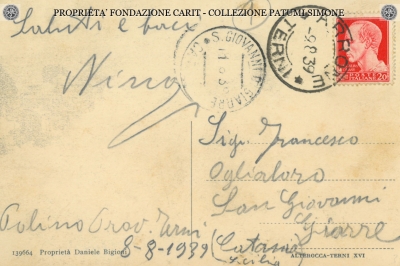 PROPRIETA' FONDAZIONE CARIT - COLLEZIONE PATUMI SIMONE
Saluti e baci
Nino
S. GIOVANNI
ARRONE
-9.8.39
TERNI
Sig. Francesco
Oglialoro
San Giovanni
Giarre
(Catania
Sicilia)
Polino Prov. Terni
8-8-1939
139664 Proprietà Daniele Bigioni
ALTEROCCA-TERNI XVI